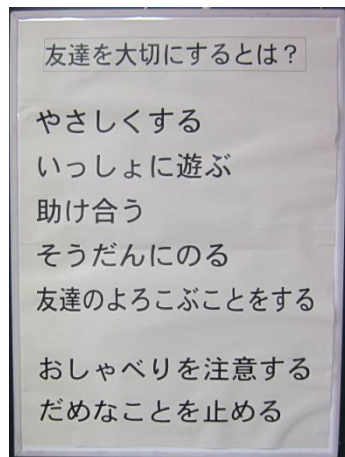 友達を大切にするとは？
やさしくする
いっしょに遊ぶ
助け合う
そうだんにのる
友達のよろこぶことをする
おしゃべりを注意する
だめなことを止める